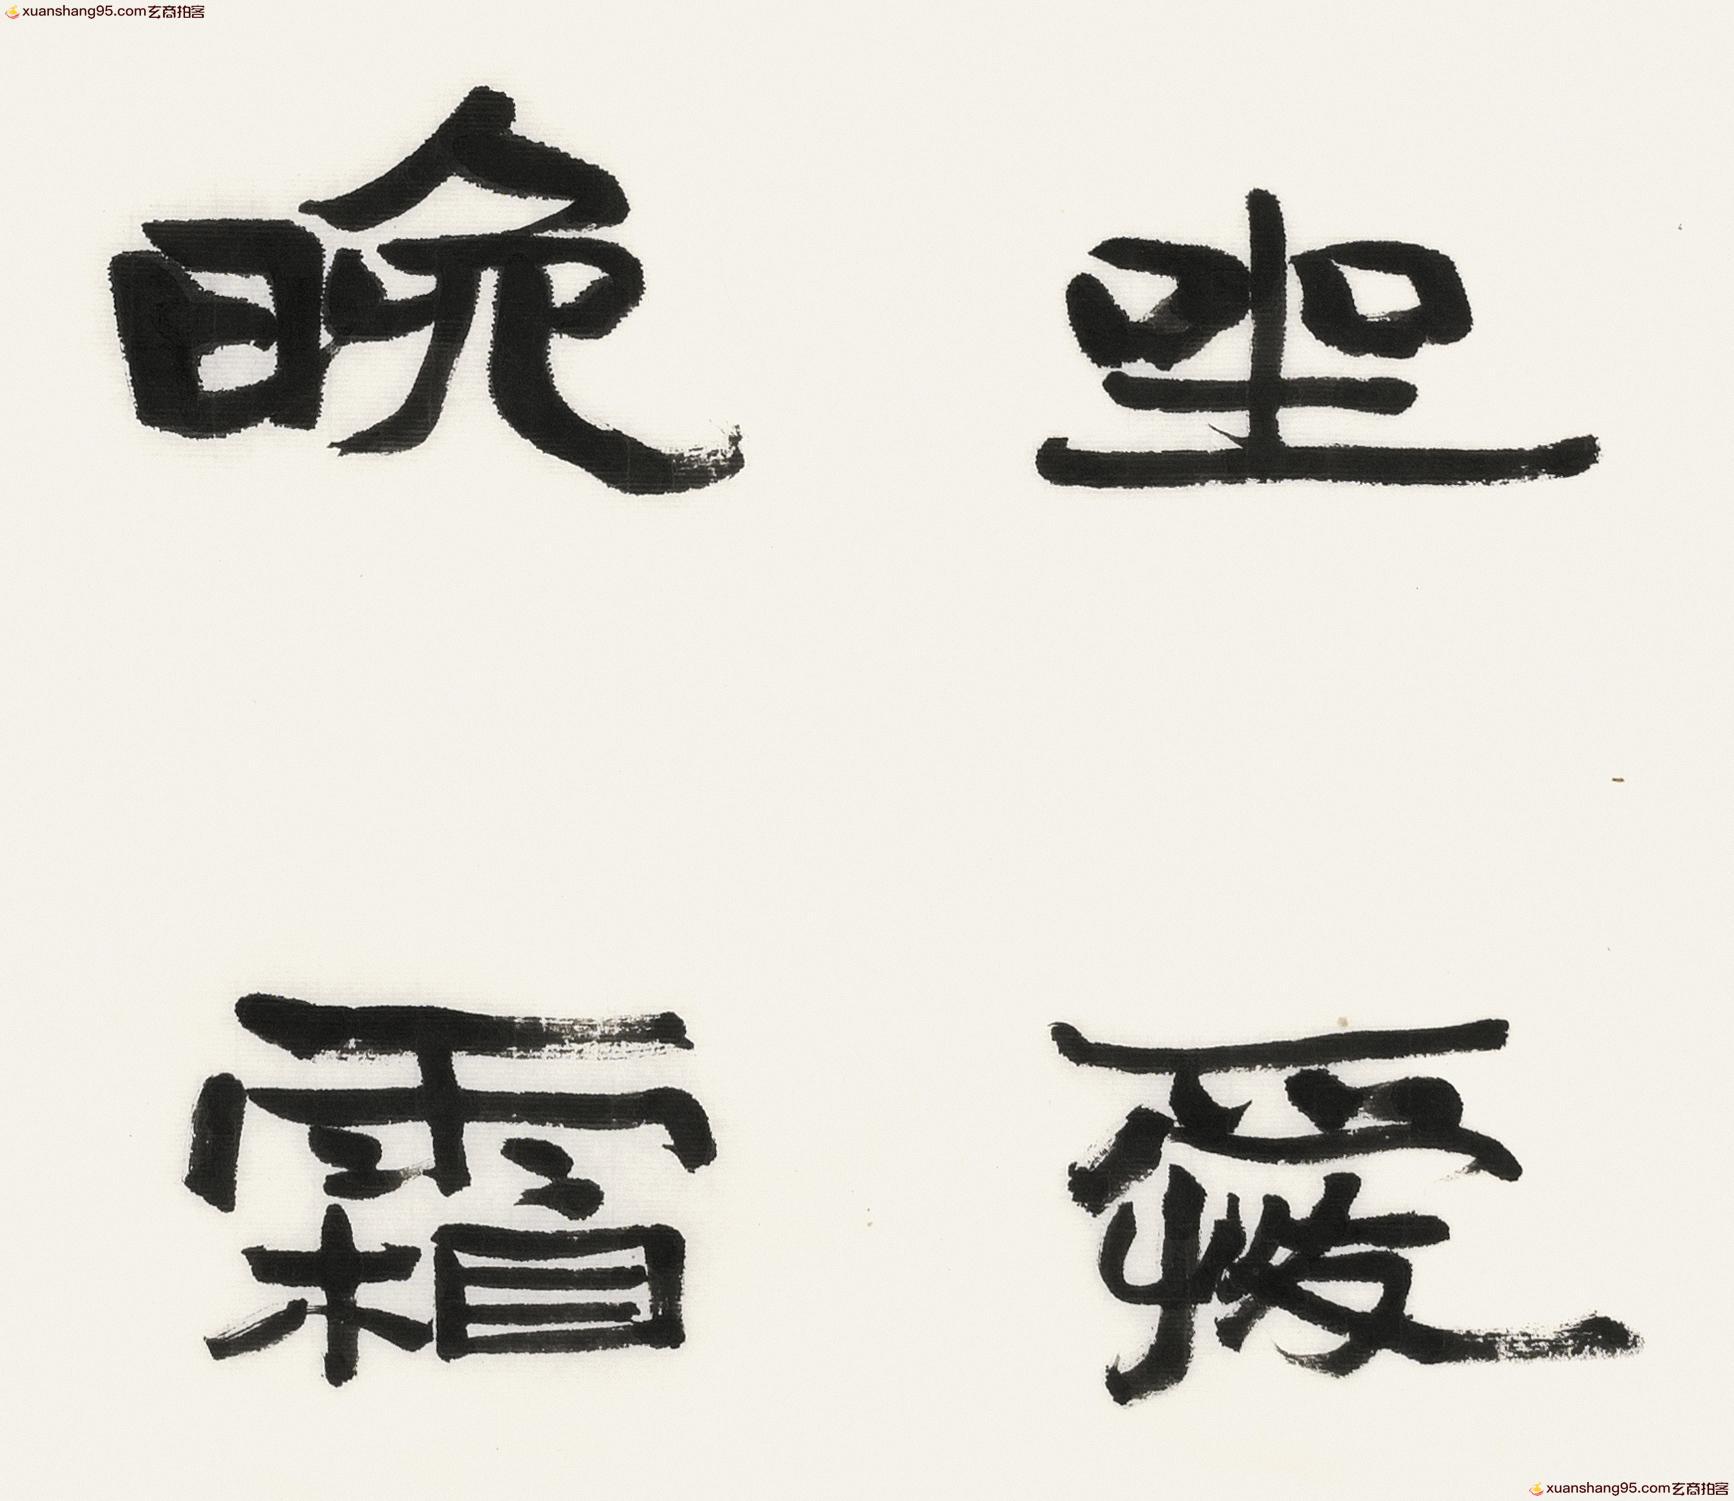 xuanshang95.com玄商拍客
坐愛
晚霜
xuanshang95.com玄商拍客